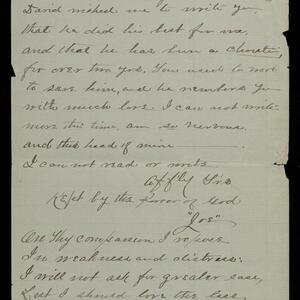 David wished me to write you
that he did his best for me,
and that he has been a Christian
for over two yrs. You used to work
to save him, and he remembers you
with much love. I can not write
more this time, am so nervous
and this head of mine
I can not read or write
Aff'ly Yrs
Kept by the power of God
"Joe"
On Thy compassion I repose
In weakness and distress:
I will not ask for greater ease,
Lest I should love Thee less,